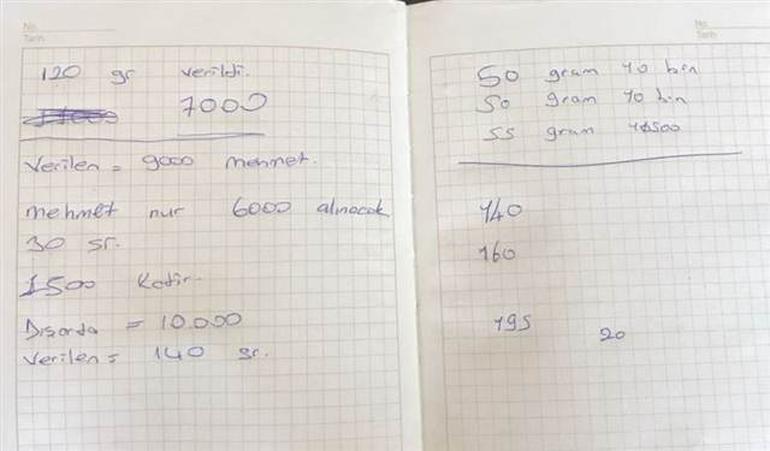 No
Tarih
120 gr verildi.
7000
Verilen = 9000 mehmet.
mehmet nur 6000 alınacak
30 gr.
1500 Kadir.
Dısarda = 10.000
Verilen = 140 gr.
No
Tarih
50 gram 10 bin
50 gram 10 bin
55 gram
140
160
195
20